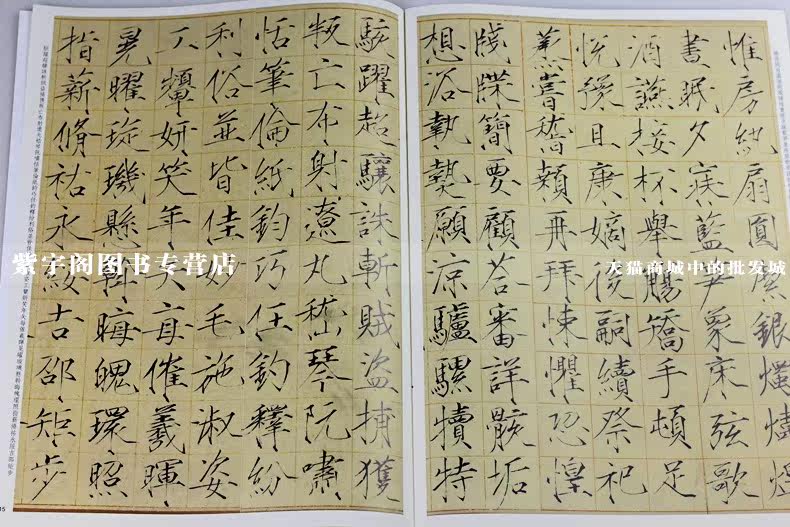 惟房紈扇圓潔銀燭煒煌
晝眠夕寐藍笋象床弦歌
酒讌接杯舉觴矯手頓足
悅豫且康嫡後嗣續祭祀
蒸嘗稽顙再拜悚懼恐惶
牋牒簡要顧答審詳骸垢
想浴執熱願涼驢騾犢特
駭躍超驤誅斬賊盗捕獲
叛亡布射遼丸嵇琴阮嘯
恬筆倫紙鈞巧任釣釋紛
利俗並皆佳妙毛施淑姿
工顰妍笑年矢每催羲暉
晃曜琁璣懸斡晦魄環照
指薪脩祜永綏吉邵矩步
紫宇阁图书专营店
天猫商城中的批发城
15